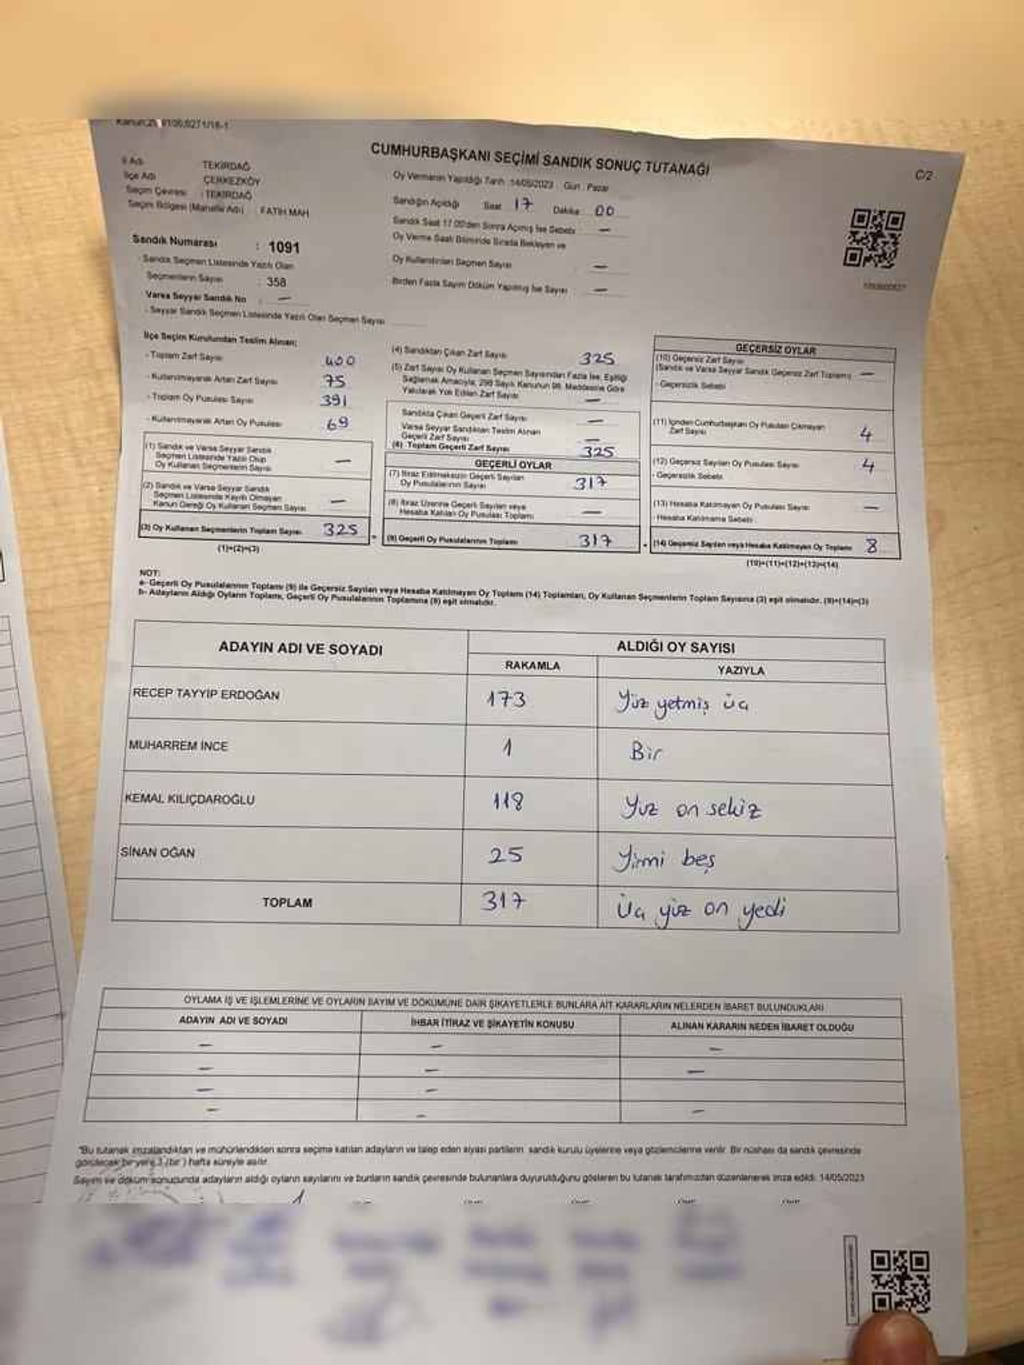 CUMHURBAŞKANI SEÇİMİ SANDIK SONUÇ TUTANAĞI
C/2
İl Adı TEKİRDAĞ
İlçe Adı ÇERKEZKÖY
Seçim Çevresi : TEKİRDAĞ
Seçim Bölgesi (Mahalle Adı) : FATİH MAH
Sandık Numarası : 1091
Sandık Seçmen Listesinde Yazılı Olan
Seçmenlerin Sayısı : 358
Varsa Seyyar Sandık No : —
- Seyyar Sandık Seçmen Listesinde Yazılı Olan Seçmen Sayısı
Oy Vermenin Yapıldığı Tarih :14/05/2023 Gün : Pazar
Sandığın Açıldığı Saat 17 Dakika 00
Sandık Saat 17.00'den Sonra Açılmış İse Sebebi —
Oy Verme Saati Bitiminde Sırada Bekleyen ve
Oy Kullandırılan Seçmen Sayısı —
Birden Fazla Sayım Döküm Yapılmış İse Sayısı : —
İlçe Seçim Kurulundan Teslim Alınan;
- Toplam Zarf Sayısı 400
- Kullanılmayarak Artan Zarf Sayısı 75
- Toplam Oy Pusulası Sayısı 391
- Kullanılmayarak Artan Oy Pusulası 69
(1) Sandık ve Varsa Seyyar Sandık
Seçmen Listesinde Yazılı Olup
Oy Kullanan Seçmenlerin Sayısı —
(2) Sandık ve Varsa Seyyar Sandık
Seçmen Listesinde Kayıtlı Olmayan
Kanun Gereği Oy Kullanan Seçmen Sayısı —
(3) Oy Kullanan Seçmenlerin Toplam Sayısı 325
(1)+(2)=(3)
(4) Sandıktan Çıkan Zarf Sayısı 325
(5) Zarf Sayısı Oy Kullanan Seçmen Sayısından Fazla İse, Eşitliği
Sağlamak Amacıyla, 298 Sayılı Kanunun 98. Maddesine Göre
Yakılarak Yok Edilen Zarf Sayısı —
Sandıkta Çıkan Geçerli Zarf Sayısı —
Varsa Seyyar Sandıktan Teslim Alınan
Geçerli Zarf Sayısı —
(6) Toplam Geçerli Zarf Sayısı 325
GEÇERLİ OYLAR
(7) İtiraz Edilmeksizin Geçerli Sayılan
Oy Pusulasının Sayısı 317
(8) İtiraz Üzerine Geçerli Sayılan veya
Hesaba Katılan Oy Pusulası Toplamı —
(9) Geçerli Oy Pusulalarının Toplamı 317
GEÇERSİZ OYLAR
(10) Geçersiz Zarf Sayısı
(Sandık ve Varsa Seyyar Sandık Geçersiz Zarf Toplamı) —
- Geçersizlik Sebebi
(11) İçinden Cumhurbaşkanı Oy Pusulası Çıkmayan
Zarf Sayısı 4
(12) Geçersiz Sayılan Oy Pusulası Sayısı 4
- Geçersizlik Sebebi
(13) Hesaba Katılmayan Oy Pusulası Sayısı —
- Hesaba Katılmama Sebebi
(14) Geçersiz Sayılan veya Hesaba Katılmayan Oy Toplamı 8
(10)+(11)+(12)+(13)=(14)
NOT:
a- Geçerli Oy Pusulalarının Toplamı (9) ile Geçersiz Sayılan veya Hesaba Katılmayan Oy Toplamı (14) Toplamları, Oy Kullanan Seçmenlerin Toplam Sayısına (3) eşit olmalıdır. (9)+(14)=(3)
b- Adayların Aldığı Oyların Toplamı, Geçerli Oy Pusulalarının Toplamına (9) eşit olmalıdır.
ADAYIN ADI VE SOYADI ALDIĞI OY SAYISI
RAKAMLA YAZIYLA
RECEP TAYYİP ERDOĞAN 173 Yüz yetmiş üç
MUHARREM İNCE 1 Bir
KEMAL KILIÇDAROĞLU 118 Yüz on sekiz
SİNAN OĞAN 25 Yirmi beş
TOPLAM 317 Üç yüz on yedi
OYLAMA İŞ VE İŞLEMLERİNE VE OYLARIN SAYIM VE DÖKÜMÜNE DAİR ŞİKAYETLERLE BUNLARA AİT KARARLARIN NELERDEN İBARET BULUNDUKLARI
ADAYIN ADI VE SOYADI İHBAR İTİRAZ VE ŞİKAYETİN KONUSU ALINAN KARARIN NEDEN İBARET OLDUĞU
— — —
— — —
— —
— — —
*Bu tutanak imzalandıktan ve mühürlendikten sonra seçime katılan adayların ve talep eden siyasi partilerin sandık kurulu üyelerine veya gözlemcilerine verilir. Bir nüshası da sandık çevresinde
görülecek bir yere 1 (bir) hafta süreyle asılır.
Sayım ve döküm sonucunda adayların aldığı oyların sayılarını ve bunların sandık çevresinde bulunanlara duyurulduğunu gösteren bu tutanak tarafımızdan düzenlenerek imza edildi. 14/05/2023